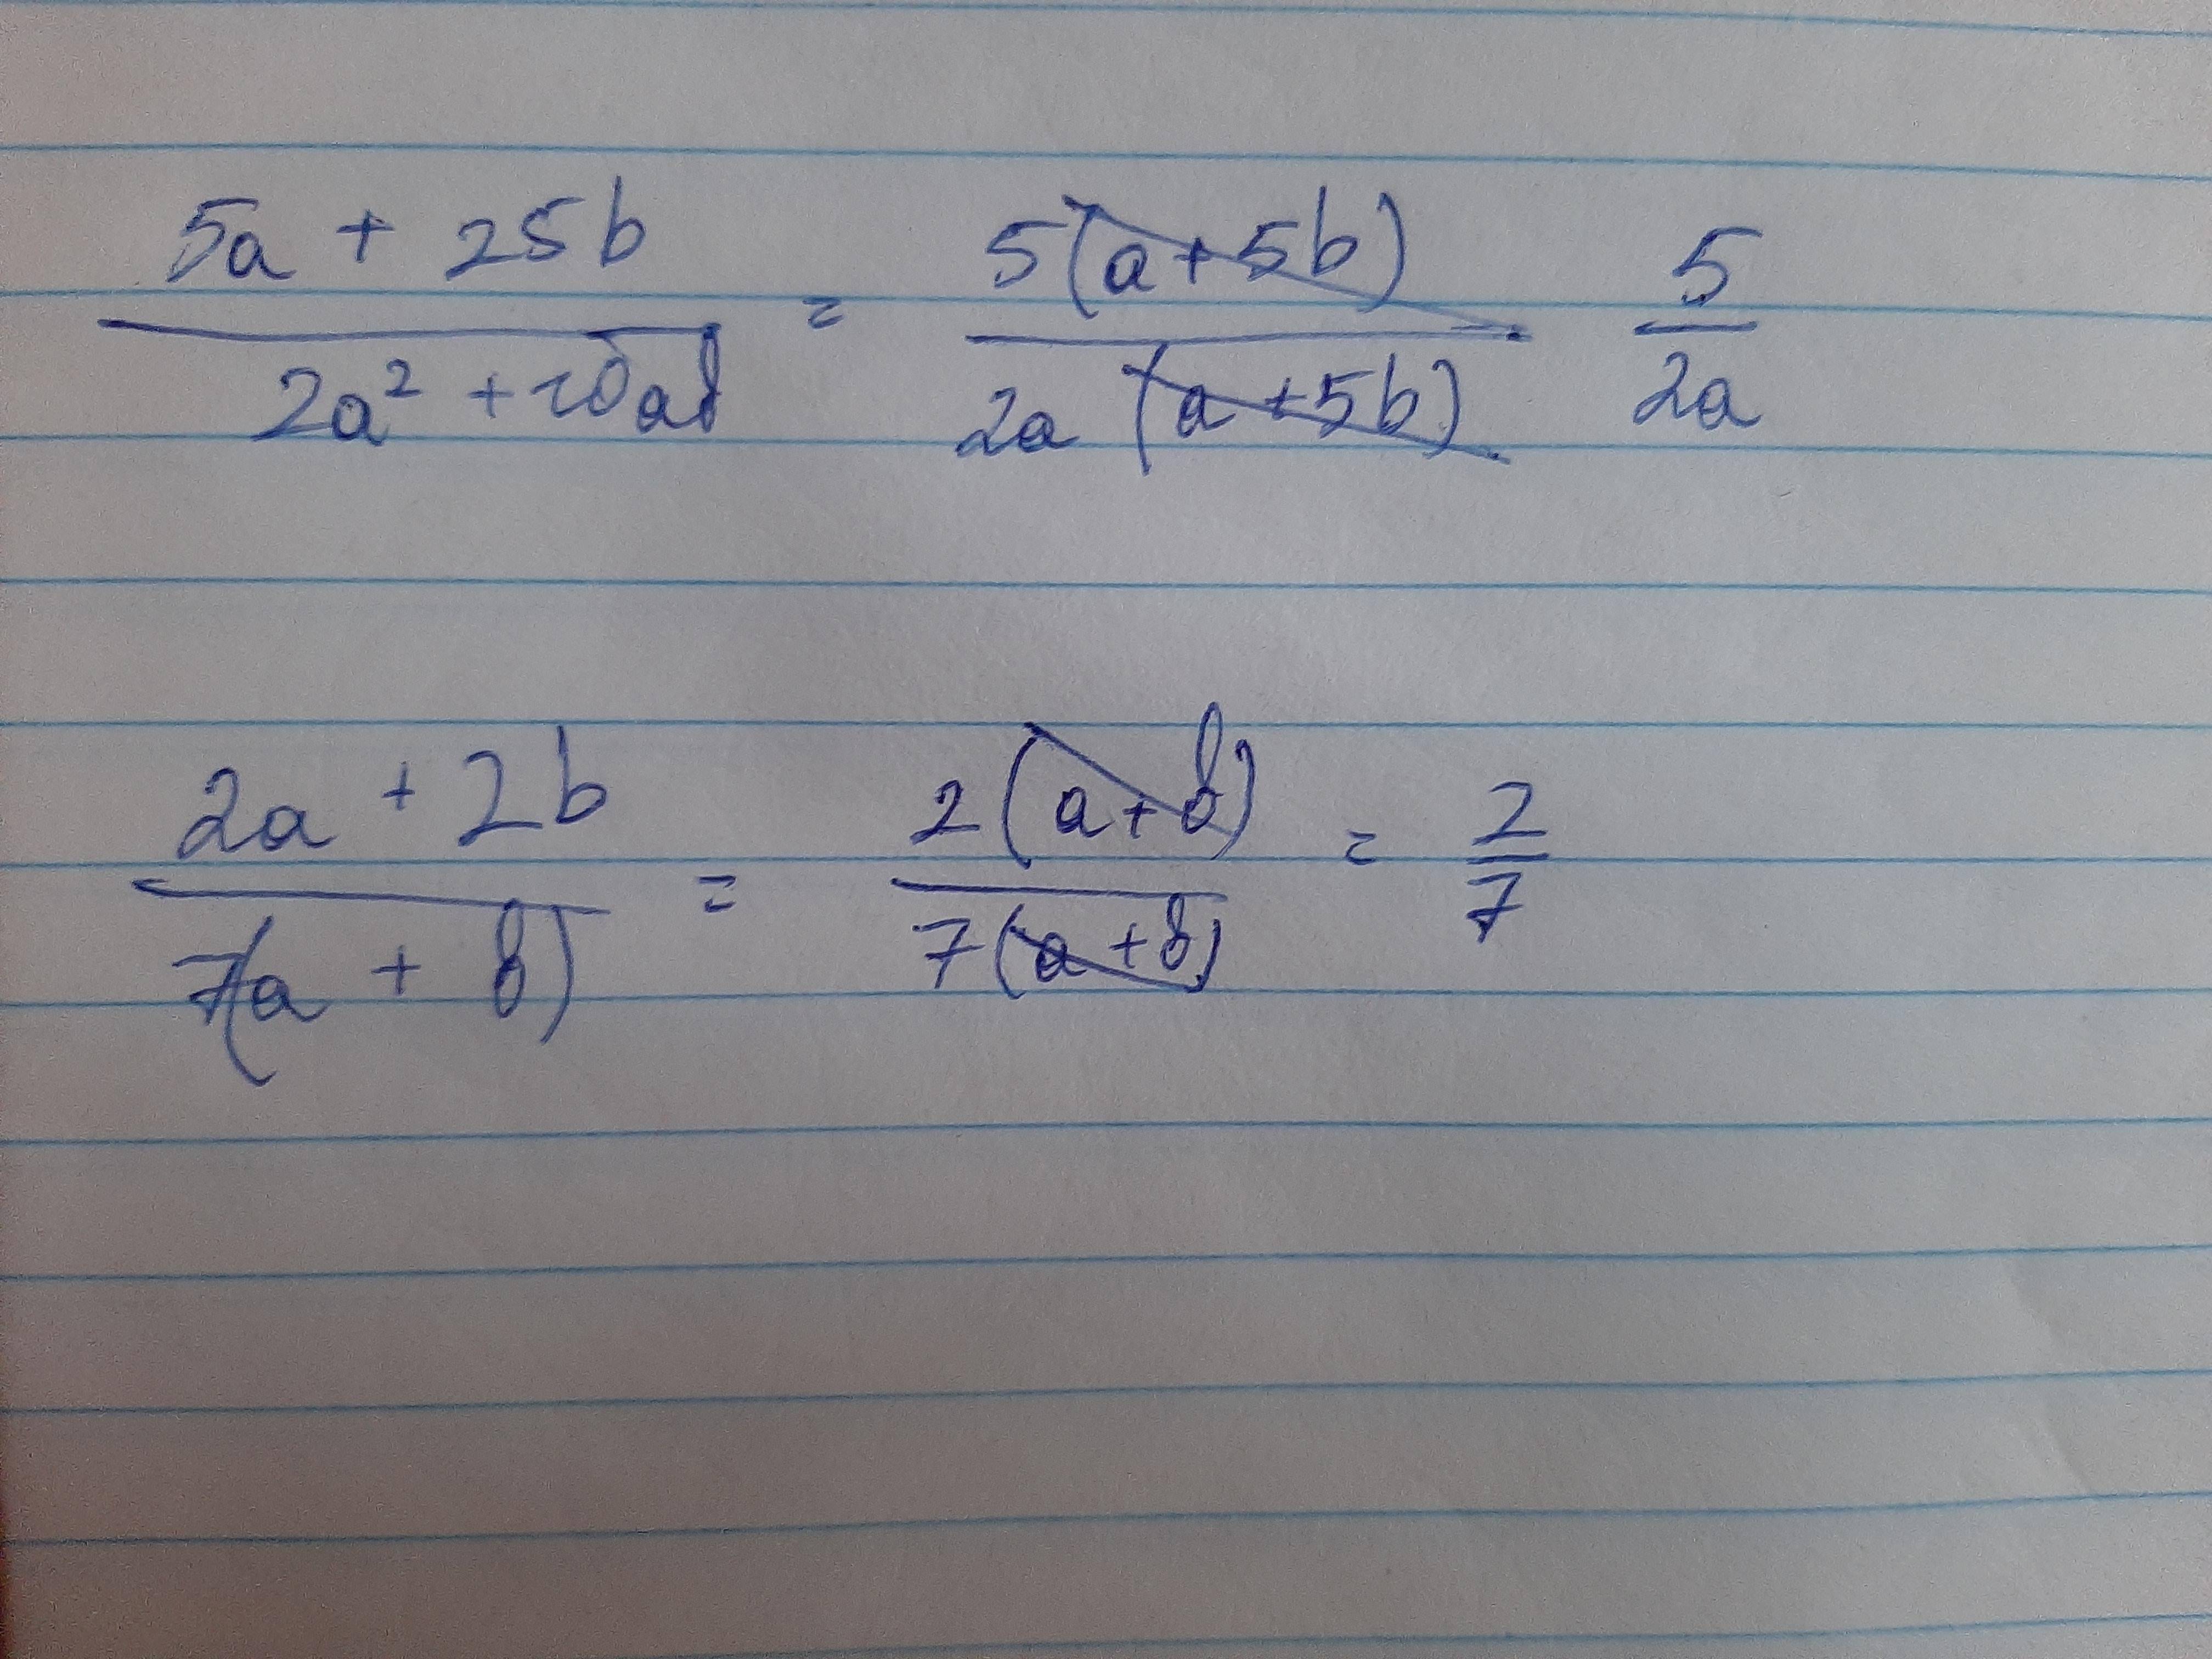 5a + 25b / 2a² + 10ab = 5(a+5b) / 2a (a+5b) 5 / 2a
2a + 2b / 7(a + b) = 2(a+b) / 7(a+b) = 2 / 7